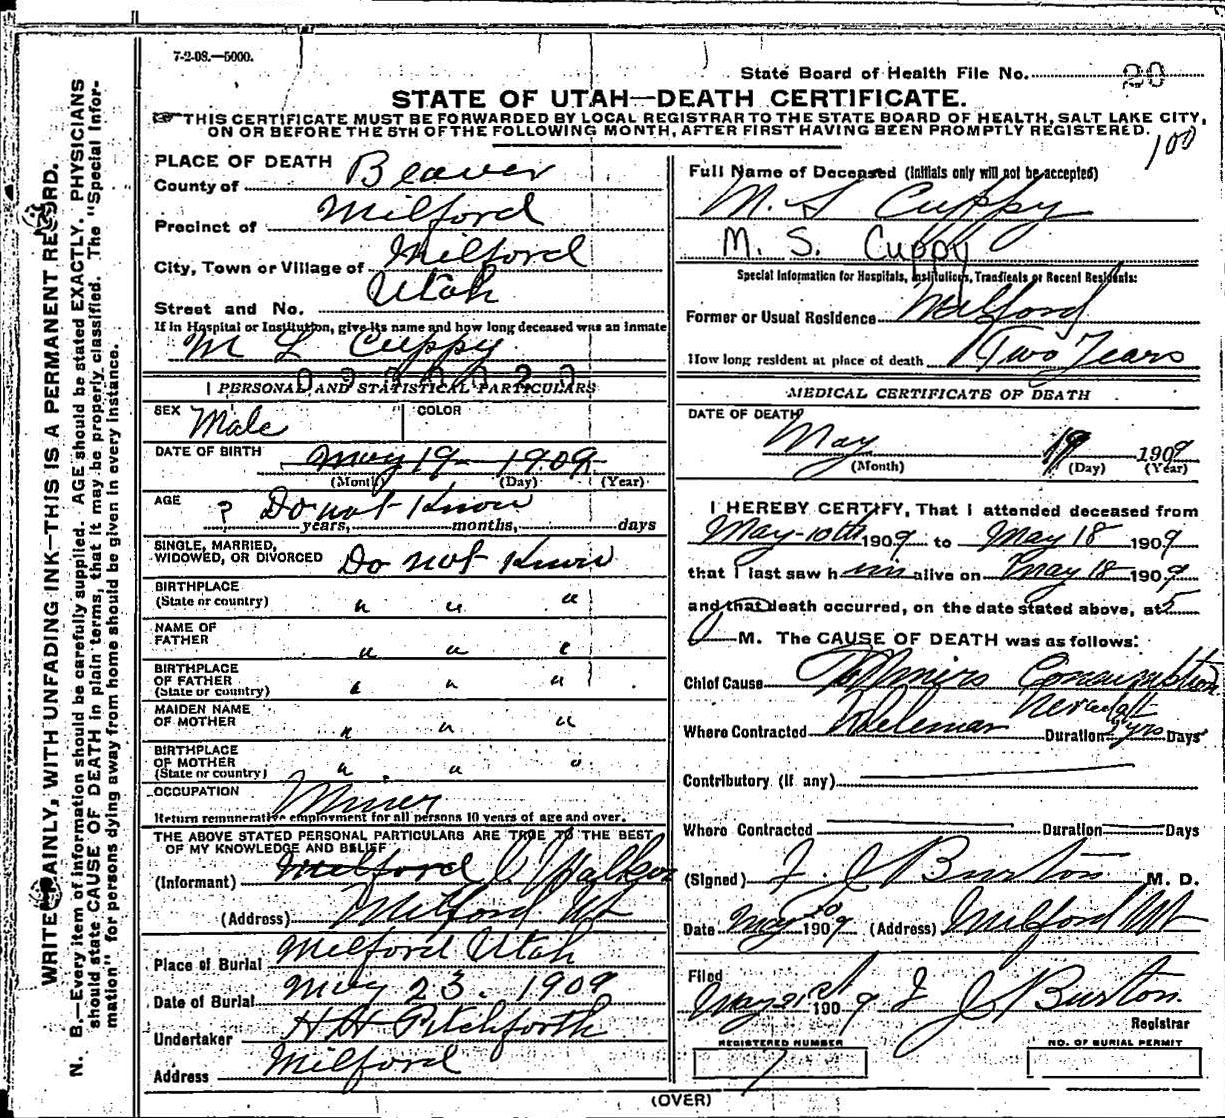 7-2-08.—5000.
State Board of Health File No. 20
STATE OF UTAH—DEATH CERTIFICATE.
THIS CERTIFICATE MUST BE FORWARDED BY LOCAL REGISTRAR TO THE STATE BOARD OF HEALTH, SALT LAKE CITY,
ON OR BEFORE THE 5TH OF THE FOLLOWING MONTH, AFTER FIRST HAVING BEEN PROMPTLY REGISTERED.
100
PLACE OF DEATH
County of Beaver
Precinct of Milford
City, Town or Village of Milford
Street and No. Utah
If in Hospital or Institution, give its name and how long deceased was an inmate
M L Cuppy
PERSONAL AND STATISTICAL PARTICULARS
SEX Male COLOR
DATE OF BIRTH May 19 1909
(Month) (Day) (Year)
AGE ? Do not Know
years, months, days
SINGLE, MARRIED,
WIDOWED, OR DIVORCED Do not Know
BIRTHPLACE
(State or country) " " "
NAME OF
FATHER " " "
BIRTHPLACE
OF FATHER
(State or country) " " "
MAIDEN NAME
OF MOTHER " " "
BIRTHPLACE
OF MOTHER
(State or country) " " "
OCCUPATION Miner
Return remunerative employment for all persons 10 years of age and over.
THE ABOVE STATED PERSONAL PARTICULARS ARE TRUE TO THE BEST
OF MY KNOWLEDGE AND BELIEF
(Informant) Milford C Walker
(Address) Milford Ut
Place of Burial Milford Utah
Date of Burial May 23. 1909
Undertaker H H Pitchforth
Address Milford
Full Name of Deceased (Initials only will not be accepted)
M. S Cuppy
M. S. Cuppy
Special Information for Hospitals, Institutions, Transients or Recent Residents:
Former or Usual Residence Milford
How long resident at place of death Two Years
MEDICAL CERTIFICATE OF DEATH
DATE OF DEATH
May 19 1909
(Month) (Day) (Year)
I HEREBY CERTIFY, That I attended deceased from
May 10th 1909 to May 18 1909
that I last saw him alive on May 18 1909
and that death occurred, on the date stated above, at 5
M. The CAUSE OF DEATH was as follows:
Chief Cause Miners Consumption
Where Contracted Delemar Nevada Duration yrs Days
Contributory (if any)
Where Contracted Duration Days
(Signed) J Burton M. D.
Date May 20 1909 (Address) Milford Ut
Filed
May 21st 1909 J Burton
Registrar
REGISTERED NUMBER
7
NO. OF BURIAL PERMIT
(OVER)
WRITE PLAINLY, WITH UNFADING INK—THIS IS A PERMANENT RECORD.
N. B.—Every item of information should be carefully supplied. AGE should be stated EXACTLY. PHYSICIANS
should state CAUSE OF DEATH in plain terms, that it may be properly classified. The "Special Infor-
mation" for persons dying away from home should be given in every instance.